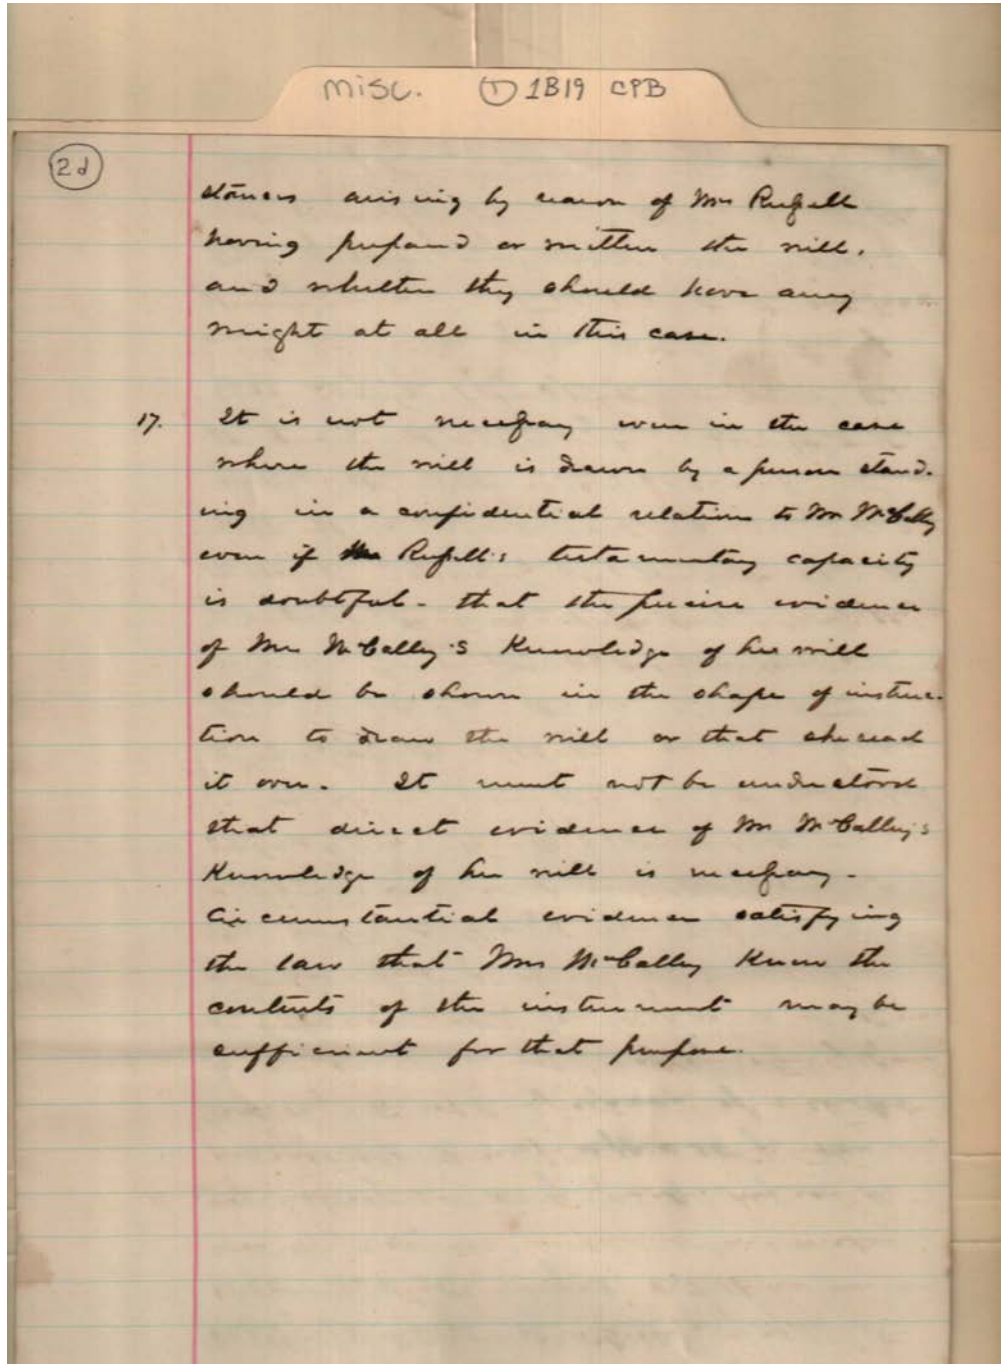 misc. ① 1B19 CPB
2d
stances arising by reason of Mrs Russell
having prepared or written the will.
and whether they should have any
weight at all in this case.
17. It is not necessary even in the case
where the will is drawn by a person stand-
ing in a confidential relation to Mrs McCalley
even if Russell's testamentary capacity
is doubtful - that the precise evidence
of Mrs McCalley's Knowledge of her will
should be shown in the shape of instruc-
tion to draw the will or that she read
it over. It must not be understood
that direct evidence of Mrs McCalley's
Knowledge of her will is necessary -
Circumstantial evidence satisfying
the law that Mrs McCalley Knew the
contents of the instrument may be
sufficient for that purpose.